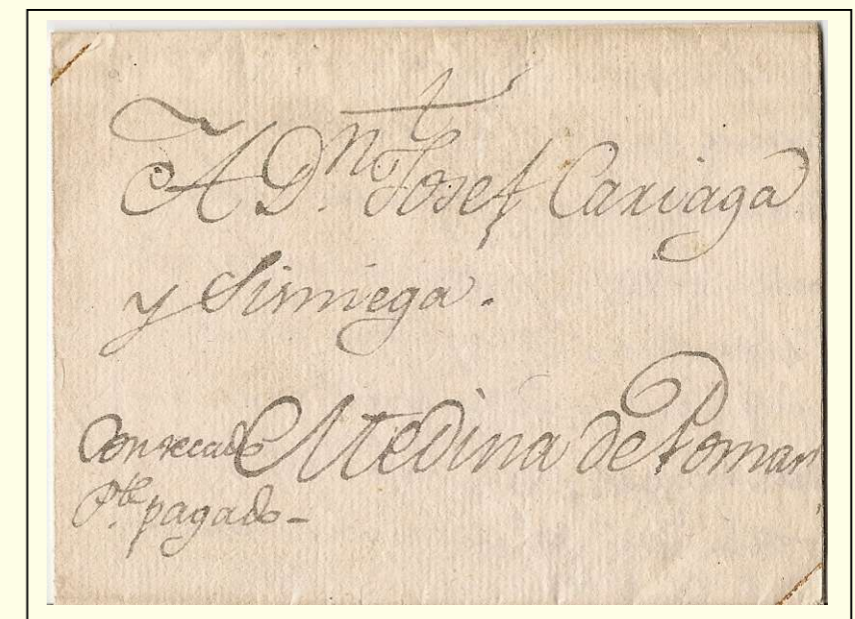 A Dn. Josef Cariaga
y Sirmiega.
Con recado Medina de Pomar
Pte. pagado -